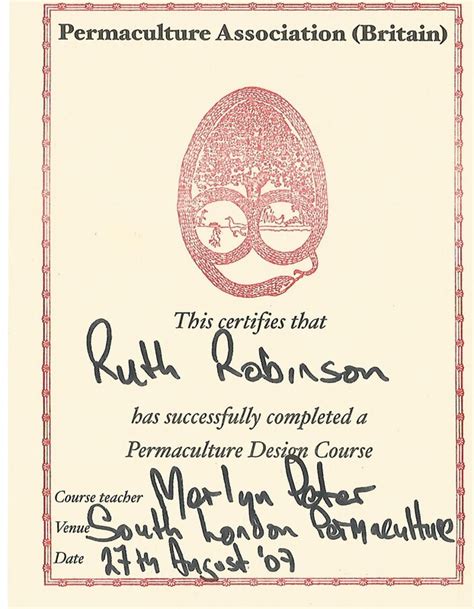 Permaculture Association (Britain)
This certifies that
Ruth Robinson
has successfully completed a
Permaculture Design Course
Course teacher
Venue South London Permaculture
Date 27th August '07